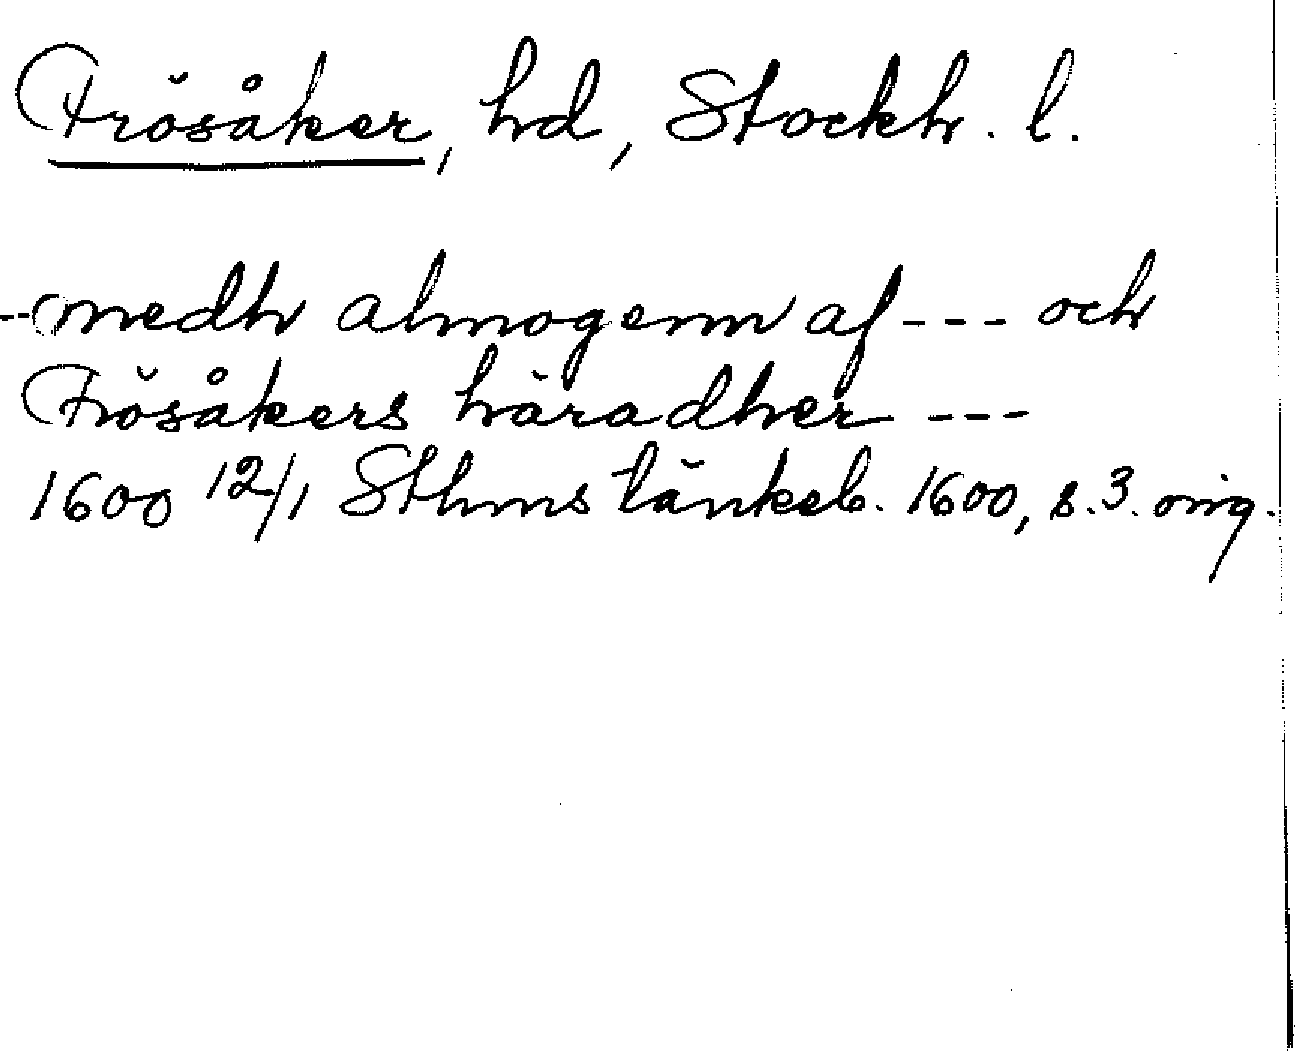 Frösåker, hd, Stockh. l.
-- medh almogenn af --- och
Frösåkers häradher ---
1600 12/1 Sthms tänkeb. 1600, s. 3. orig.